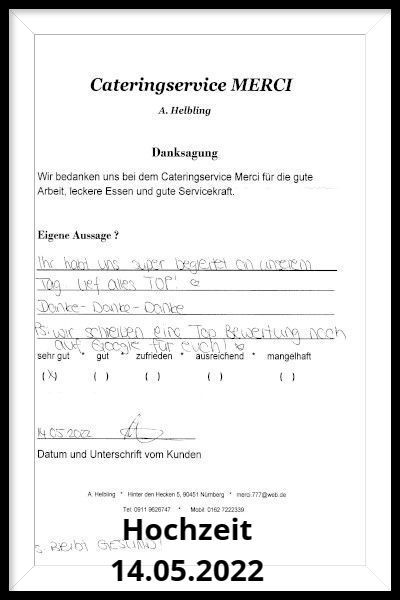 Cateringservice MERCI
A. Helbling
Danksagung
Wir bedanken uns bei dem Cateringservice Merci für die gute
Arbeit, leckere Essen und gute Servicekraft.
Eigene Aussage ?
Ihr habt uns super begleitet an unserem
Tag lief alles TOP!
Danke - Danke - Danke
PS: wir schreiben eine Top Bewertung noch
auf Google für euch!
sehr gut * gut * zufrieden * ausreichend * mangelhaft
(X) ( ) ( ) ( ) ( )
14.05.2022
Datum und Unterschrift vom Kunden
A. Helbling * Hinter den Hecken 5, 90451 Nürnberg * merci.777@web.de
Tel: 0911 9626747 * Mobil: 0162 7222339
Hochzeit
Bleibt GESUND!
14.05.2022